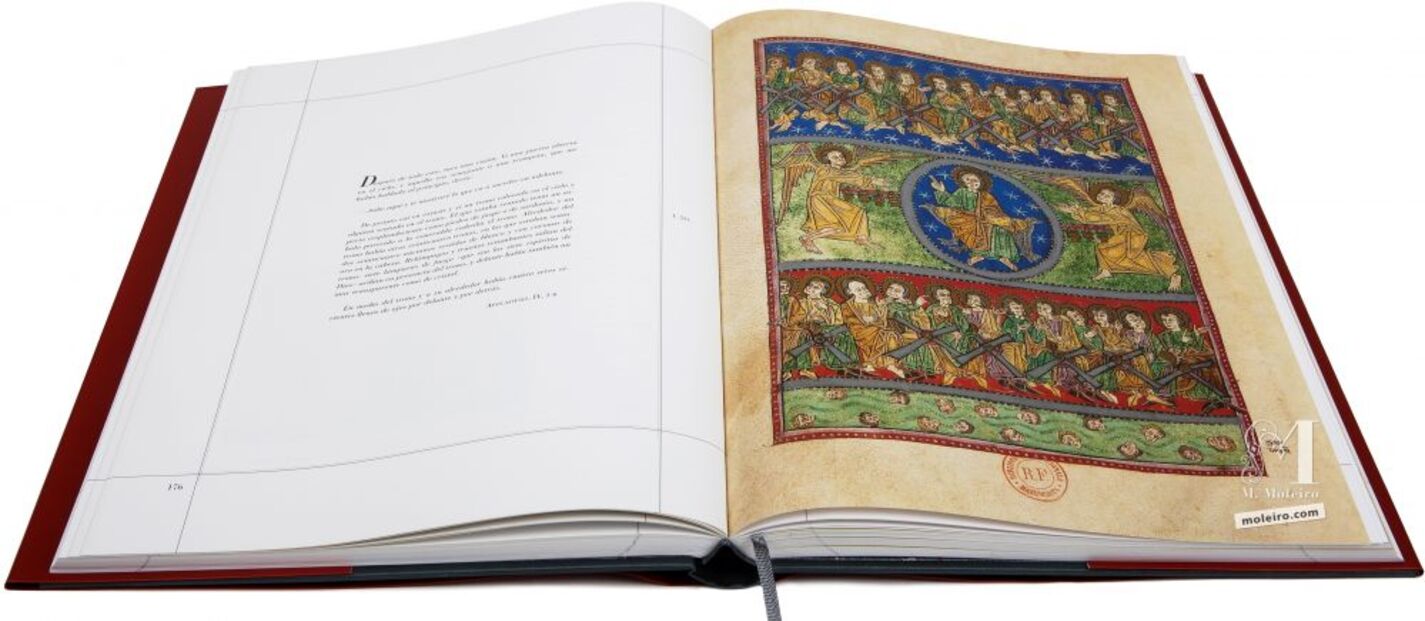 Después de todo esto, tuve una visión. Vi una puerta abierta
en el cielo, y aquella voz semejante a una trompeta, que me
había hablado al principio, decía:
—Sube aquí y te mostraré lo que va a suceder en adelante.
De pronto caí en éxtasis y vi un trono colocado en el cielo y
alguien sentado en el trono. El que estaba sentado tenía un as-
pecto resplandeciente como piedra de jaspe o de sardonio, y un
halo parecido a la esmeralda rodeaba el trono. Alrededor del
trono había otros veinticuatro tronos, en los que estaban senta-
dos veinticuatro ancianos vestidos de blanco y con coronas de
oro en la cabeza. Relámpagos y truenos retumbantes salían del
trono; siete lámparas de fuego -que son los siete espíritus de
Dios- ardían en presencia del trono, y delante había también un
mar transparente como de cristal.
En medio del trono y a su alrededor había cuatro seres vi-
vientes llenos de ojos por delante y por detrás.
APOCALIPSIS, IV, 1-6
176
R.F.
MANUSCRITS
M
M. Moleiro
moleiro.com